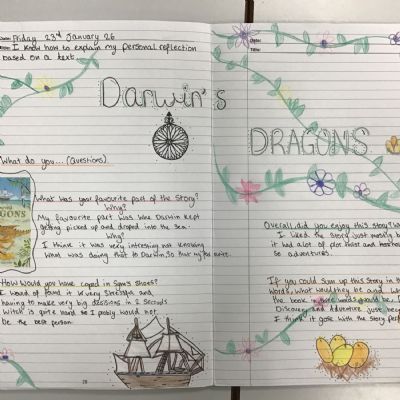 Date: Friday 23rd January 26
I know how to explain my personal reflection
based on a text.
Darwin's
What do you... (Questions)
What was your favourite part of the story?
Why?
My favourite part was when Darwin kept
getting picked up and droped into the sea.
Why?
I think it was very intresting not knowing
what was doing that to Darwin, so that
How would you have coped in Syms shoes?
I would of found it very stressful and
having to make very big decisions in 2 seconds
witch is quite hard so I probly would not
be the best person.
Date:
Title:
DRAGONS
Overall, did you enjoy this story?
I liked the story just mainly
it had a lot of plot twist and
so adventures.
If you could sum up this story in
words, what would they be and
the book in three words would be
Discovery and Adventure just
I think it goes with the story